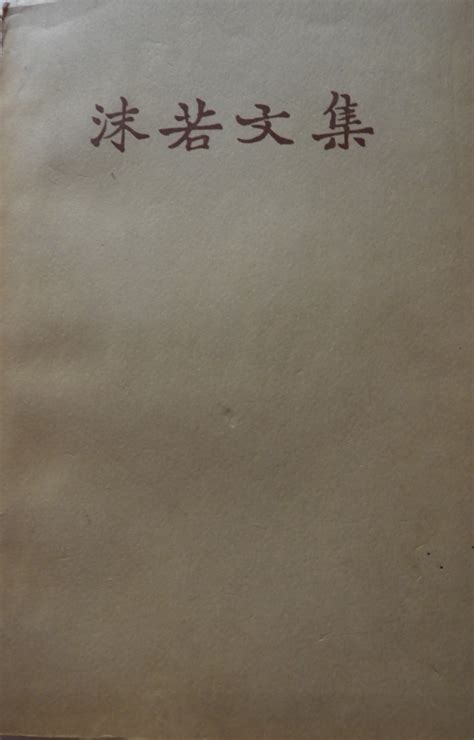 沫若文集